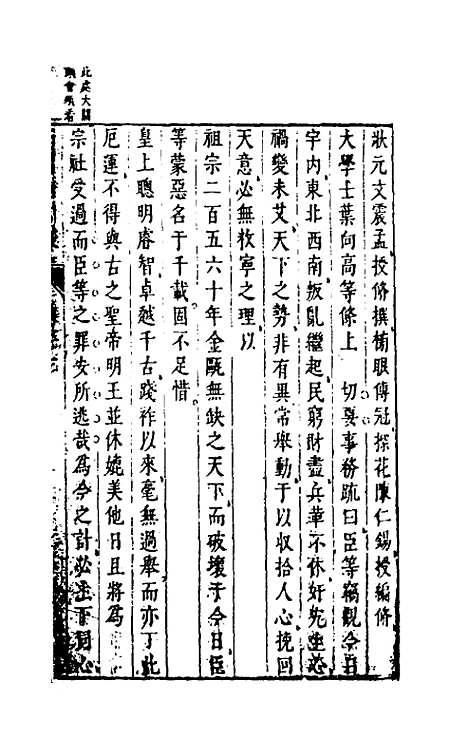 此處大關
頭會須看
狀元文震孟授修撰榜眼傳冠探花陳仁錫授編修
大學士葉向高等條上　切要事務疏曰臣等竊觀今日
宇內東北西南叛亂繼起民窮財盡兵革不休奸先生心
禍變未艾天下之勢非有異常舉動于以收拾人心挽回
天意必無救寧之理以
祖宗二百五六十年金甌無缺之天下而破壞于今日臣
等蒙惡名于千載固不足惜
皇上聰明睿智卓越千古踐祚以來毫無過舉而亦丁此
厄運不得與古之聖帝明王並休媲美他日且將為
宗社受過而臣等之罪安所逃哉為今之計必上下同心